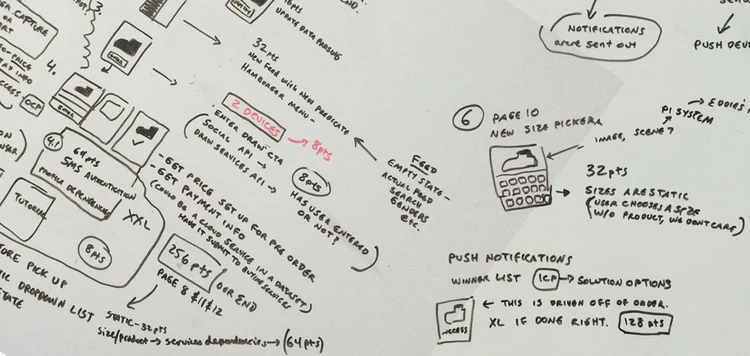 3.
ER CAPTURE
OR
PORT
ACCESS
OCP
4.
UPDATE DATA PARSING
32PTS
NEW FEED WITH NEW PREDICATE
HAMBURGER MENU -
2 DEVICES → 8pts
ENTER DRAW CTA
(SOCIAL API →
DRAW SERVICES API →)
8pts
HAS USER ENTERED
OR NOT?
FEED
EMPTY STATE -
ACTUAL FEED
SEARCH
GENDERS
ETC.
4.1
64pts
SMS AUTHENTICATION
PROFILE DEPENDENCIES
XXL
TUTORIAL
8pts
- GET PRICE SET UP FOR PRE ORDER
- GET PAYMENT INFO
(COULD BE A CLOUD SERVICE IN A DATASET)
HAVE IT SUBMIT TO BUYING SERVICES
256 pts OUR END
PAGE 8 $11$12
ORE PICK UP
IC DROPDOWN LIST
STATE
STATIC - 32pts
Size/product → services dependencies → (64pts)
NOTIFICATIONS
are sent out
PUSH DEVI
6
PAGE 10
NEW SIZE PICKERA
IMAGE, SCENE?
PI SYSTEM
→ EDDIE'S
32pts
→ SIZES ARE STATIC
(USER CHOOSES A SIZE
W/O PRODUCT, WE DON'T CARE)
PUSH NOTIFICATIONS
WINNER LIST ICP → SOLUTION OPTIONS
← THIS IS DRIVEN OFF OF ORDER.
XL IF DONE RIGHT. 128 pts